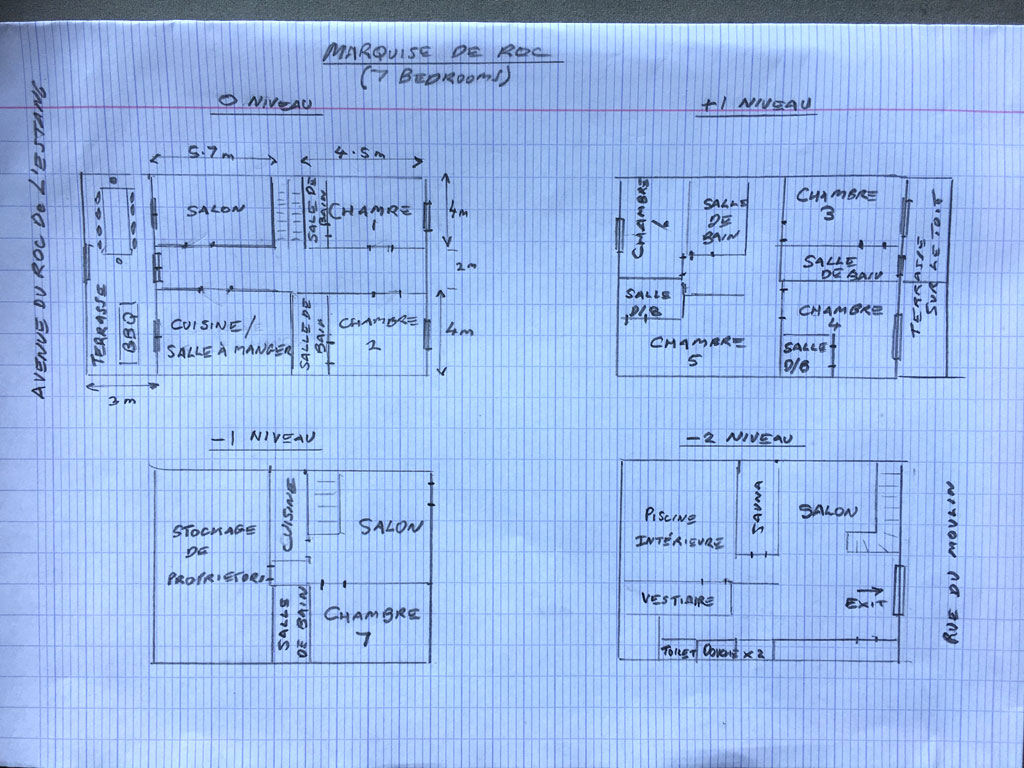 MARQUISE DE ROC
(7 BEDROOMS)
AVENUE DU ROC DE L'ESTANG
0 NIVEAU
5.7m
4.5m
SALON
SALLE DE
BAIN
CHAMRE
1
4m
2m
TERRASSE
BBQ
CUISINE/
SALLE À MANGER
SALLE DE
BAIN
CHAMBRE
2
4m
3m
+1 NIVEAU
CHAMBRE
6
SALLE
DE
BAIN
CHAMBRE
3
SALLE
DE BAIN
TERRASSE
SUR LE TOIT
SALLE
D/B
CHAMBRE
5
CHAMBRE
4
SALLE
D/B
-1 NIVEAU
STOCKAGE
DE
PROPRIETOR
CUISINE
SALON
SALLE
DE BAIN
CHAMBRE
7
-2 NIVEAU
PISCINE
INTÉRIEURE
SAUNA
SALON
VESTIAIRE
EXIT
TOILET
DOUCHE x 2
RUE DU MOULIN